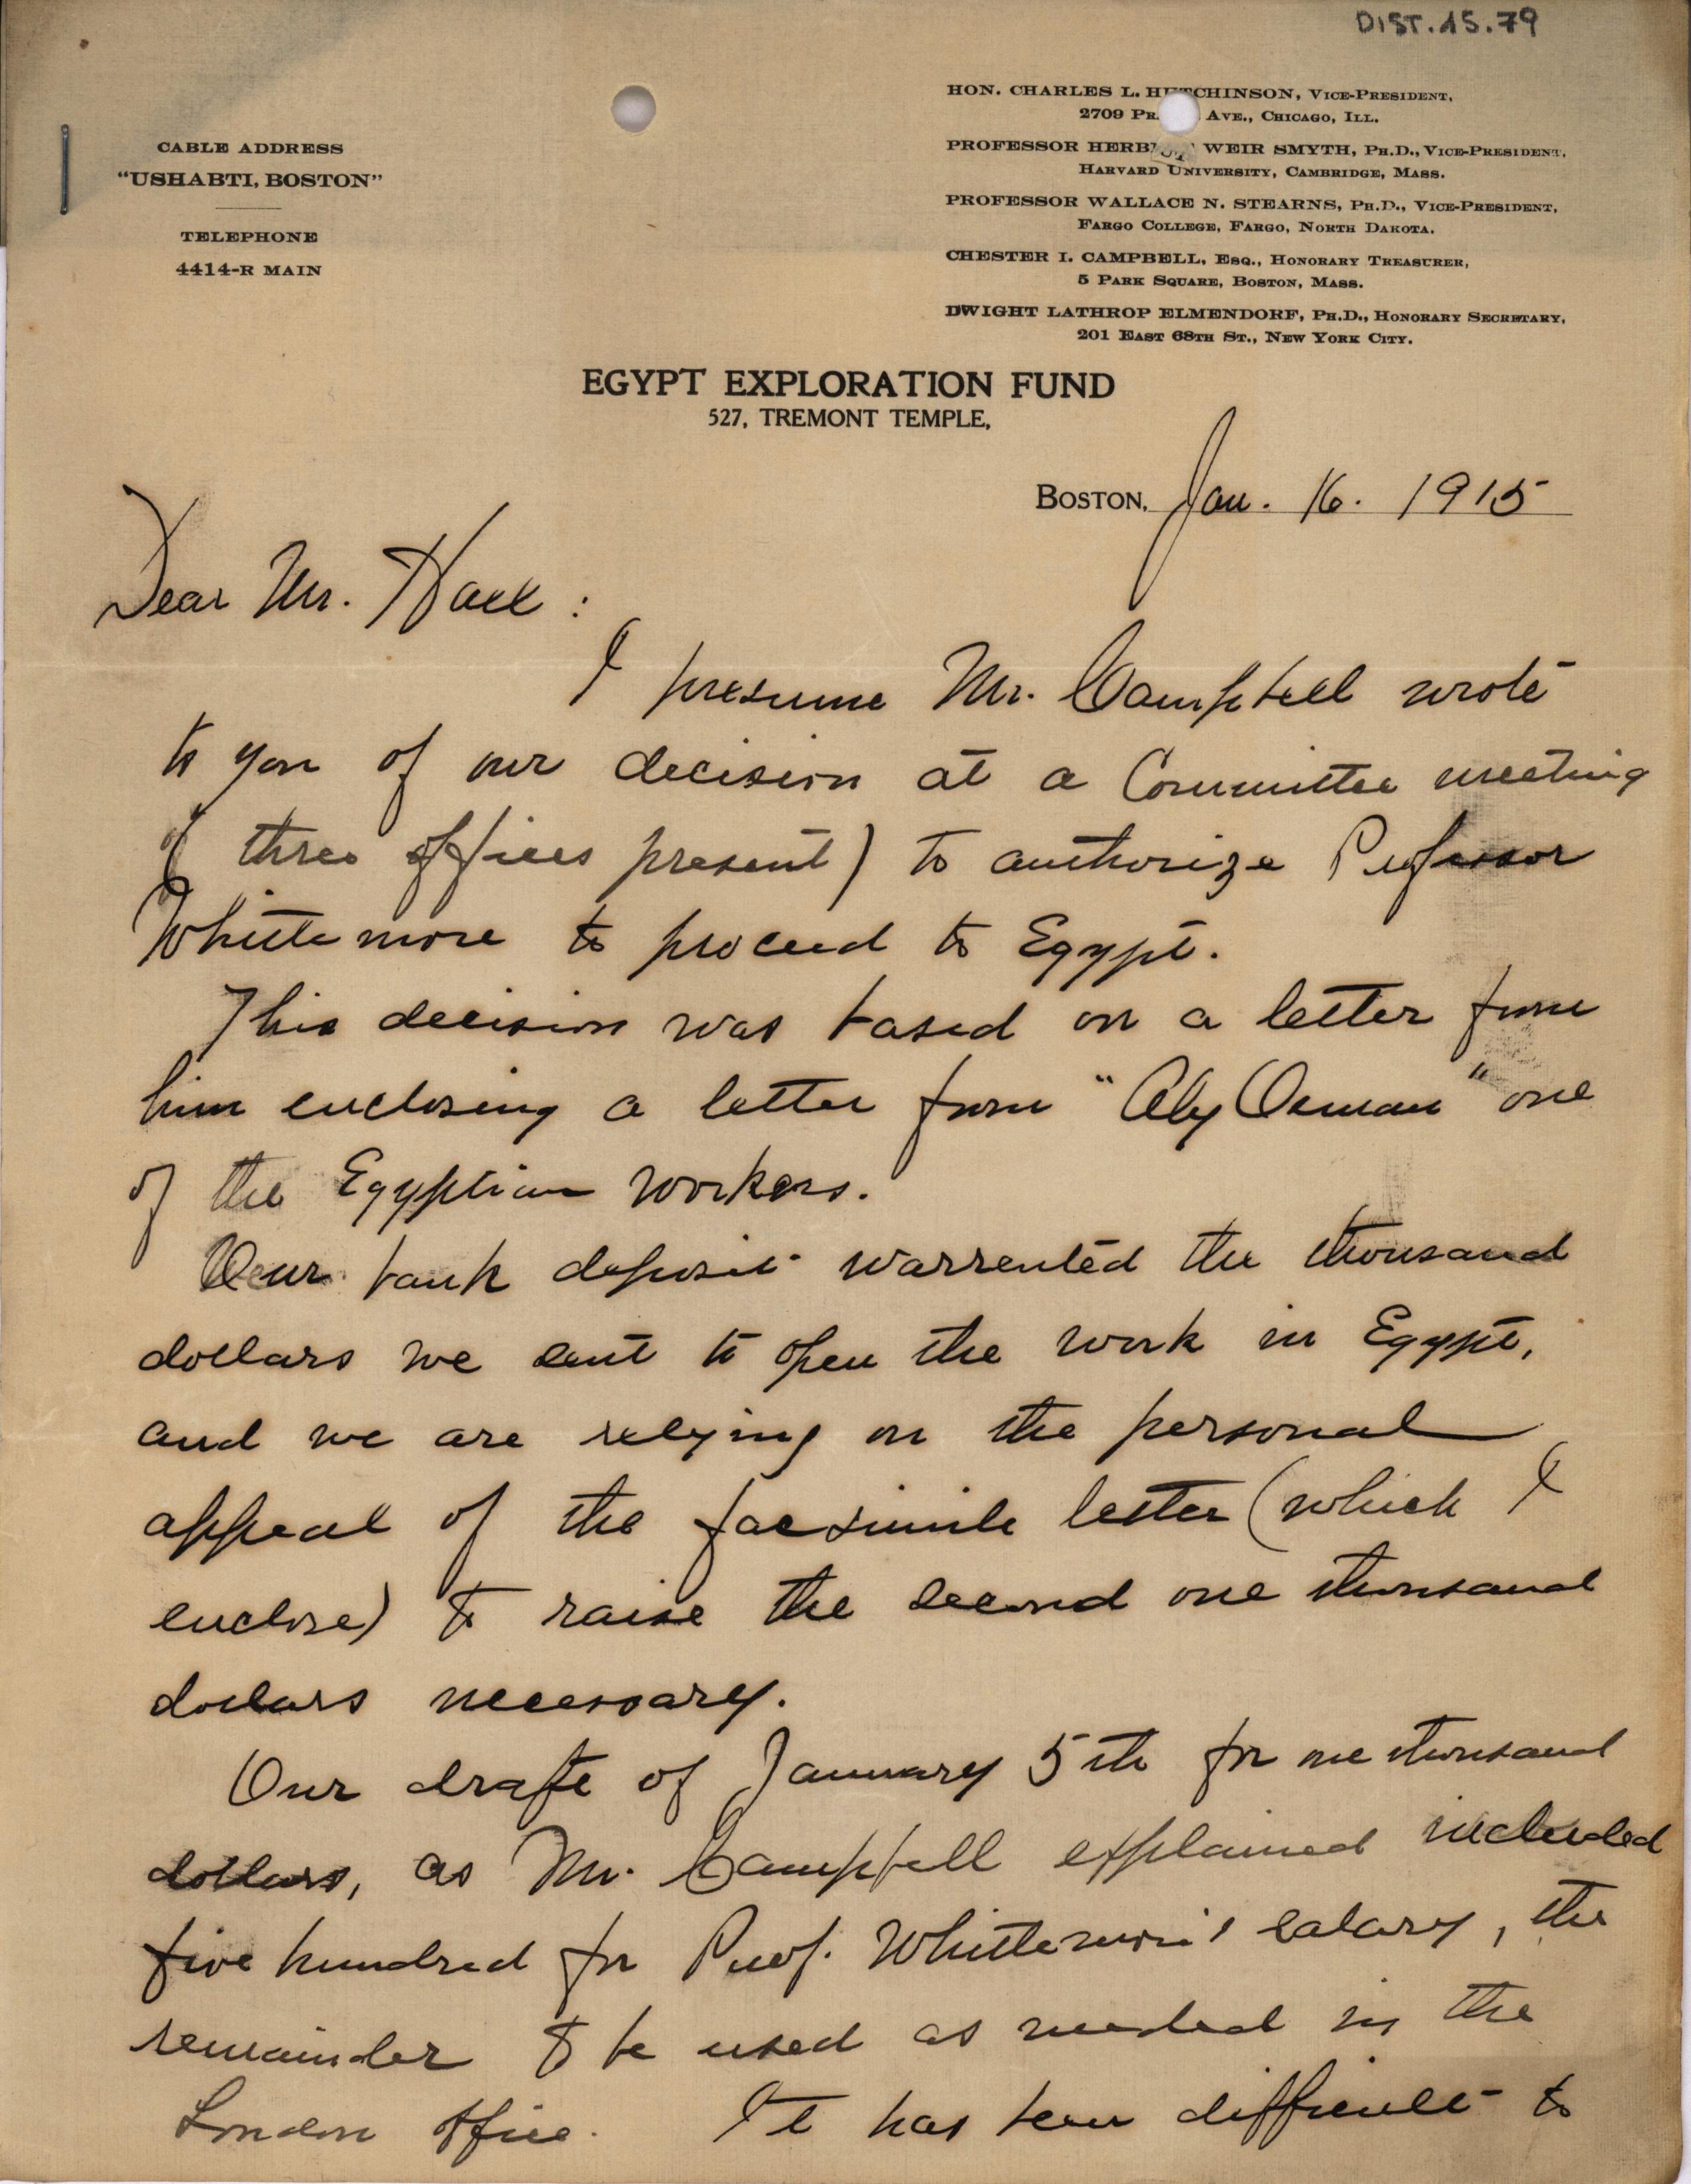 DIST.15.79
CABLE ADDRESS
"USHABTI, BOSTON"
TELEPHONE
4414-R MAIN
HON. CHARLES L. HUTCHINSON, VICE-PRESIDENT,
2709 PR AVE., CHICAGO, ILL.
PROFESSOR HERB WEIR SMYTH, PH.D., VICE-PRESIDENT,
HARVARD UNIVERSITY, CAMBRIDGE, MASS.
PROFESSOR WALLACE N. STEARNS, PH.D., VICE-PRESIDENT,
FARGO COLLEGE, FARGO, NORTH DAKOTA.
CHESTER I. CAMPBELL, ESQ., HONORARY TREASURER,
5 PARK SQUARE, BOSTON, MASS.
DWIGHT LATHROP ELMENDORF, PH.D., HONORARY SECRETARY,
201 EAST 68TH ST., NEW YORK CITY.
EGYPT EXPLORATION FUND
527, TREMONT TEMPLE,
BOSTON, Jan. 16. 1915
Dear Mr. Hall:
I presume Mr. Campbell wrote
to you of our decision at a Committee meeting
of three offices present) to authorize Professor
Whittemore to proceed to Egypt.
This decision was based on a letter from
him enclosing a letter from "Aly Osman" one
of the Egyptian workers.
Our bank deposit warrented the thousand
dollars we sent to open the work in Egypt,
and we are relying on the personal
appeal of the facsimile letter (which I
enclose) to raise the second one thousand
dollars necessary.
Our draft of January 5th for one thousand
dollars, as Mr. Campbell explained included
five hundred for Prof. Whittemore's salary, the
remainder to be used as needed in the
London office. It has been difficult to